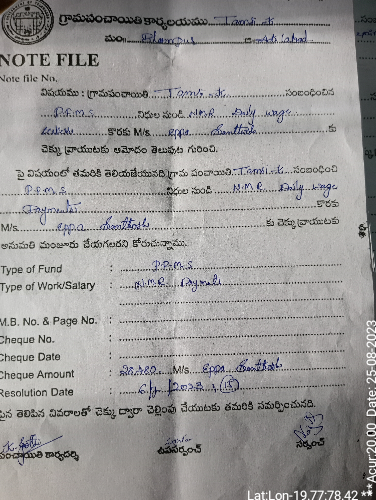 గ్రామపంచాయితి కార్యాలయము Tamsi-k
మం॥
NOTE FILE
Note file No.
విషయము : గ్రామపంచాయితి Tamsi-k సంబంధించిన
P.P.M.S నిధుల నుండి N.M.R Daily wage
కొరకు M/s eppa కు
చెక్కు వ్రాయుటకు ఆమోదం తెలుపుట గురించి.
పై విషయంలో తమరికి తెలియజేయునది గ్రామ పంచాయితి Tamsi-k సంబంధించి
P.P.M.S నిధుల నుండి N.M.R Daily wage
కొరకు
M/s eppa కు చెక్కు వ్రాయుటకు
అనుమతి మంజూరు చేయగలరని కోరుచున్నాము.
Type of Fund : P.P.M.S
Type of Work/Salary : N.M.R
M.B. No. & Page No. :
Cheque No. :
Cheque Date :
Cheque Amount : M/s eppa
Resolution Date :
పైన తెలిపిన వివరాలతో చెక్కు ద్వారా చెల్లింపు చేయుటకు తమరికి సమర్పించునది.
పంచాయితి కార్యదర్శి ఉపసర్పంచ్ సర్పంచ్
Lat:Lon-19.77:78.42 **Acur:20.00 Date: 25-08-2023